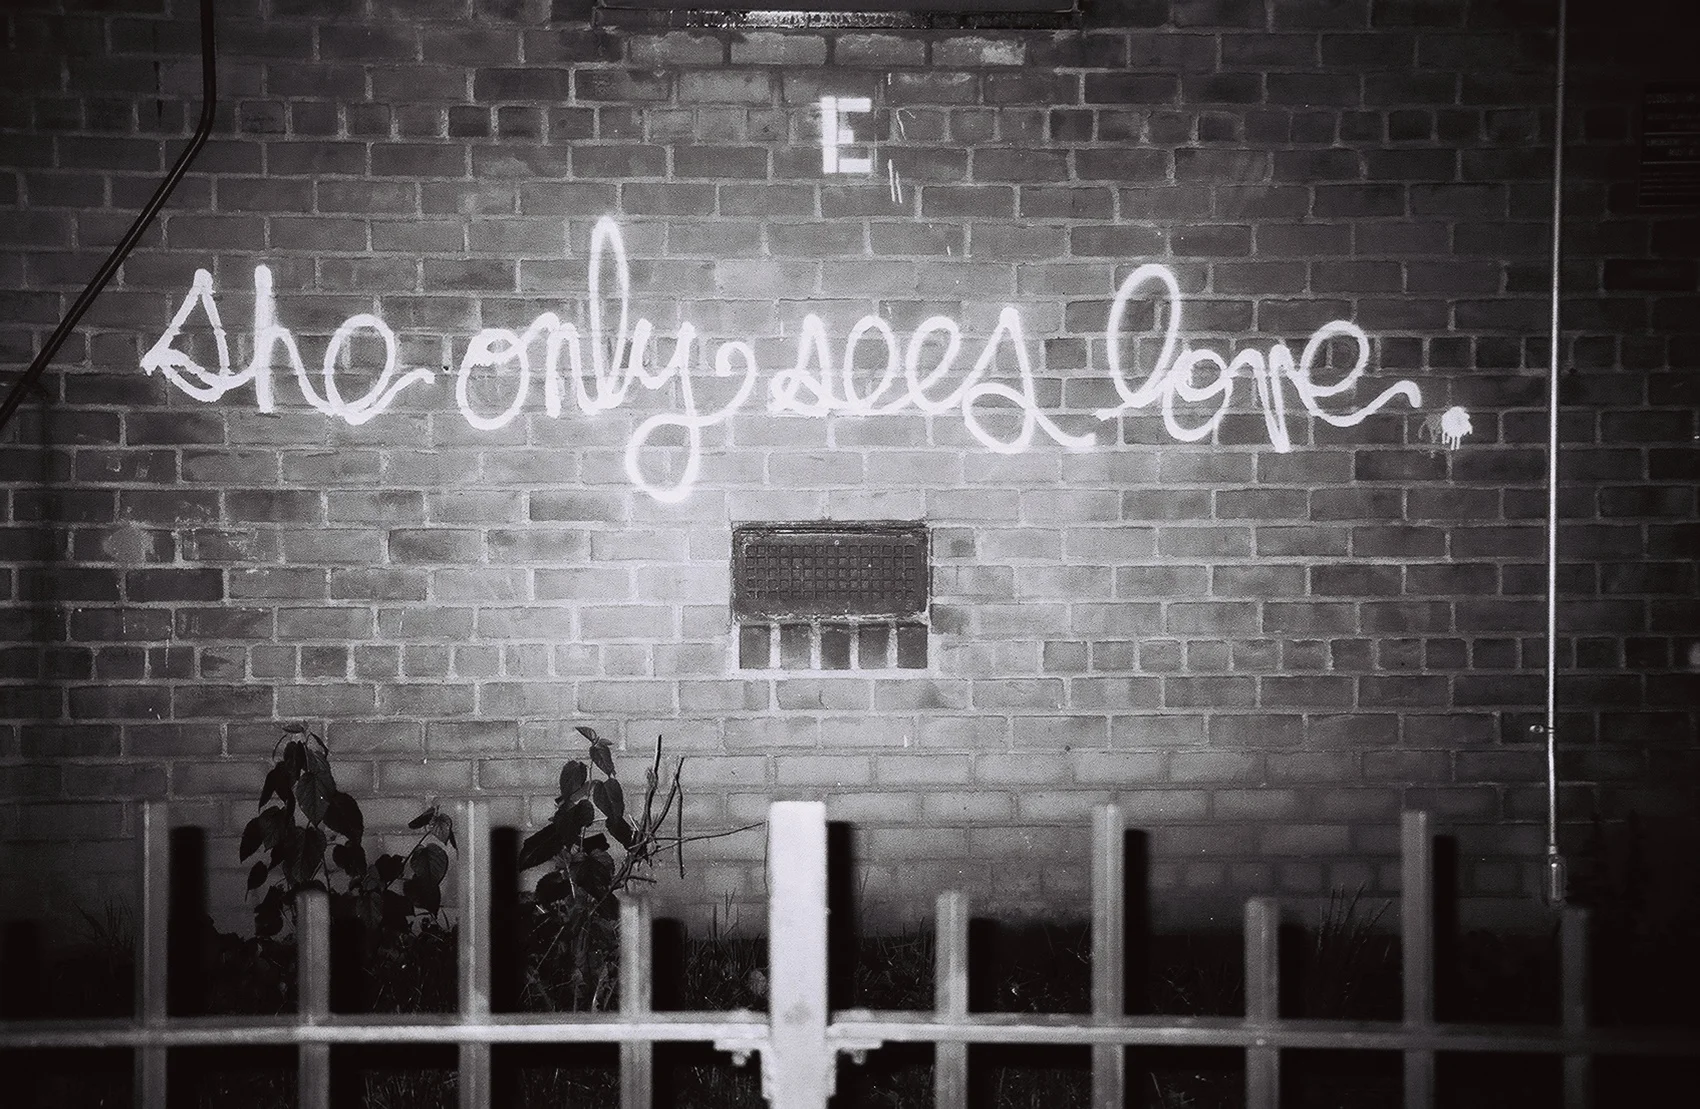 E
she only sees love.